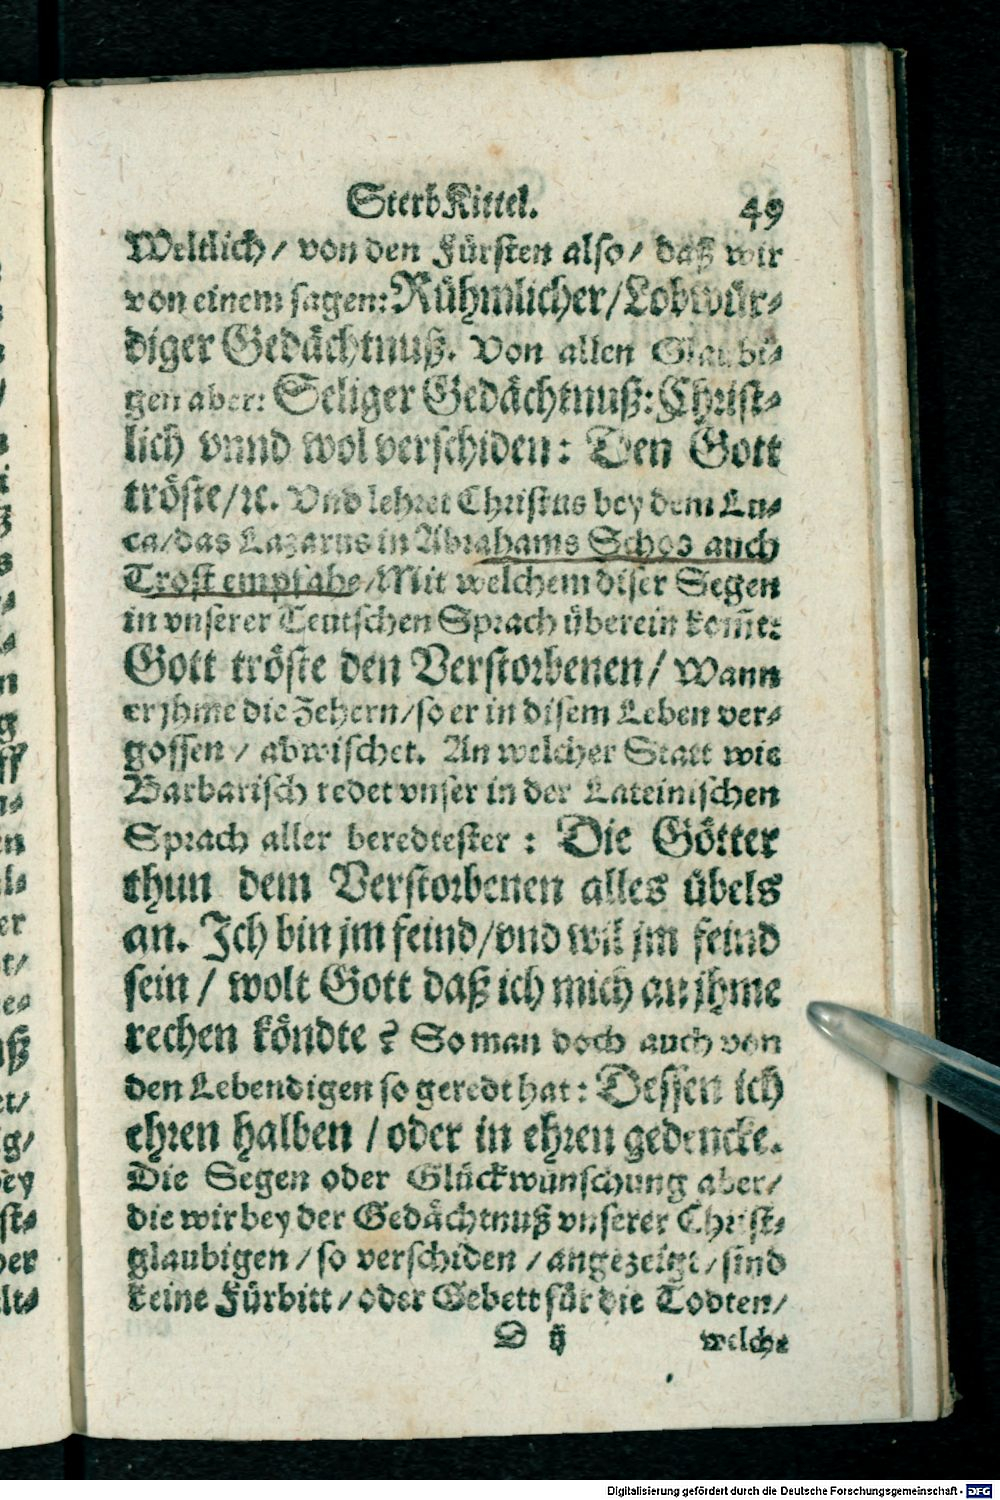 SterbKittel. 49
Weltlich/ von den Fürsten also/ daß wir
von einem sagen: Rühmlicher/ Lobwür-
diger Gedächtnuß. Von allen Glaubi-
gen aber: Seliger Gedächtnuß: Christ-
lich vnnd wol verschiden: Den Gott
tröste/ ꝛc. Vnd lehret Christus bey dem Lu-
ca/ das Lazarus in Abrahams Schos auch
Trost empfahe/ Mit welchem diser Segen
in vnserer Teutschen Sprach überein kom̃t:
Gott tröste den Verstorbenen/ Wann
er jhme die Zehern/ so er in disem Leben ver-
gossen/ abwischet. An welcher Statt wie
Barbarisch redet vnser in der Lateinischen
Sprach aller beredtester: Die Götter
thun dem Verstorbenen alles übels
an. Ich bin jm feind/ vnd wil jm feind
sein/ wolt Gott daß ich mich an jhme
rechen köndte? So man doch auch von
den Lebendigen so geredt hat: Dessen ich
ehren halben/ oder in ehren gedencke.
Die Segen oder Glückwünschung aber/
die wir bey der Gedächtnuß vnserer Christ-
glaubigen/ so verschiden/ angezeigt/ sind
keine Fürbitt/ oder Gebett für die Todten/
D ij welche
Digitalisierung gefördert durch die Deutsche Forschungsgemeinschaft - DFG